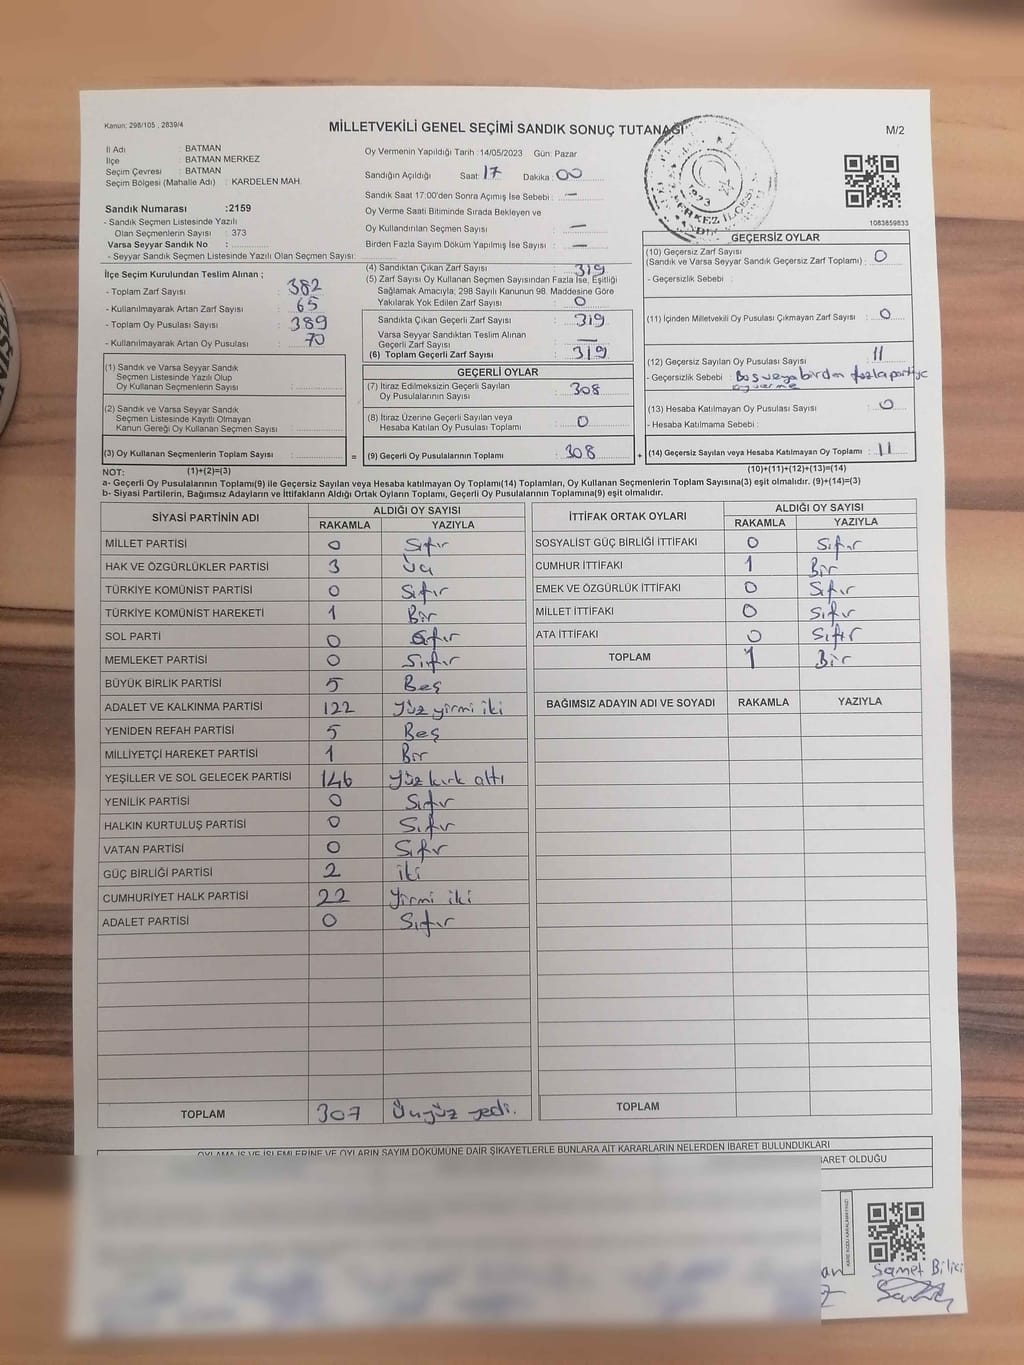 Kanun: 298/105 , 2839/4
MİLLETVEKİLİ GENEL SEÇİMİ SANDIK SONUÇ TUTANAĞI
M/2
İl Adı : BATMAN
İlçe : BATMAN MERKEZ
Seçim Çevresi : BATMAN
Seçim Bölgesi (Mahalle Adı) : KARDELEN MAH.
Sandık Numarası :2159
- Sandık Seçmen Listesinde Yazılı
Olan Seçmenlerin Sayısı : 373
Varsa Seyyar Sandık No :
- Seyyar Sandık Seçmen Listesinde Yazılı Olan Seçmen Sayısı:
Oy Vermenin Yapıldığı Tarih :14/05/2023 Gün: Pazar
Sandığın Açıldığı Saat: 17 Dakika : 00
Sandık Saat 17:00'den Sonra Açılmış İse Sebebi : —
Oy Verme Saati Bitiminde Sırada Bekleyen ve
Oy Kullandırılan Seçmen Sayısı : —
Birden Fazla Sayım Döküm Yapılmış İse Sayısı : —
1923
1083859833
İlçe Seçim Kurulundan Teslim Alınan ;
- Toplam Zarf Sayısı : 382
- Kullanılmayarak Artan Zarf Sayısı : 65
- Toplam Oy Pusulası Sayısı : 389
- Kullanılmayarak Artan Oy Pusulası : 70
(1) Sandık ve Varsa Seyyar Sandık
Seçmen Listesinde Yazılı Olup
Oy Kullanan Seçmenlerin Sayısı :
(2) Sandık ve Varsa Seyyar Sandık
Seçmen Listesinde Kayıtlı Olmayan
Kanun Gereği Oy Kullanan Seçmen Sayısı :
(3) Oy Kullanan Seçmenlerin Toplam Sayısı :
=
(4) Sandıktan Çıkan Zarf Sayısı : 319
(5) Zarf Sayısı Oy Kullanan Seçmen Sayısından Fazla İse, Eşitliği
Sağlamak Amacıyla; 298 Sayılı Kanunun 98. Maddesine Göre
Yakılarak Yok Edilen Zarf Sayısı : 0
Sandıkta Çıkan Geçerli Zarf Sayısı : 319
Varsa Seyyar Sandıktan Teslim Alınan
Geçerli Zarf Sayısı : —
(6) Toplam Geçerli Zarf Sayısı : 319
GEÇERLİ OYLAR
(7) İtiraz Edilmeksizin Geçerli Sayılan
Oy Pusulalarının Sayısı : 308
(8) İtiraz Üzerine Geçerli Sayılan veya
Hesaba Katılan Oy Pusulası Toplamı : 0
(9) Geçerli Oy Pusulalarının Toplamı : 308
+
GEÇERSİZ OYLAR
(10) Geçersiz Zarf Sayısı
(Sandık ve Varsa Seyyar Sandık Geçersiz Zarf Toplamı) : 0
- Geçersizlik Sebebi :
(11) İçinden Milletvekili Oy Pusulası Çıkmayan Zarf Sayısı : 0
(12) Geçersiz Sayılan Oy Pusulası Sayısı : 11
- Geçersizlik Sebebi : Boş veya birden fazla partiye
oy verme
(13) Hesaba Katılmayan Oy Pusulası Sayısı : 0
- Hesaba Katılmama Sebebi :
(14) Geçersiz Sayılan veya Hesaba Katılmayan Oy Toplamı : 11
NOT: (1)+(2)=(3) (10)+(11)+(12)+(13)=(14)
a- Geçerli Oy Pusulalarının Toplamı(9) ile Geçersiz Sayılan veya Hesaba katılmayan Oy Toplamı(14) Toplamları, Oy Kullanan Seçmenlerin Toplam Sayısına(3) eşit olmalıdır. (9)+(14)=(3)
b- Siyasi Partilerin, Bağımsız Adayların ve İttifakların Aldığı Ortak Oyların Toplamı, Geçerli Oy Pusulalarının Toplamına(9) eşit olmalıdır.
SİYASİ PARTİNİN ADI ALDIĞI OY SAYISI
RAKAMLA YAZIYLA
MİLLET PARTİSİ 0 Sıfır
HAK VE ÖZGÜRLÜKLER PARTİSİ 3 Üç
TÜRKİYE KOMÜNİST PARTİSİ 0 Sıfır
TÜRKİYE KOMÜNİST HAREKETİ 1 Bir
SOL PARTİ 0 Sıfır
MEMLEKET PARTİSİ 0 Sıfır
BÜYÜK BİRLİK PARTİSİ 5 Beş
ADALET VE KALKINMA PARTİSİ 122 Yüz yirmi iki
YENİDEN REFAH PARTİSİ 5 Beş
MİLLİYETÇİ HAREKET PARTİSİ 1 Bir
YEŞİLLER VE SOL GELECEK PARTİSİ 146 Yüz kırk altı
YENİLİK PARTİSİ 0 Sıfır
HALKIN KURTULUŞ PARTİSİ 0 Sıfır
VATAN PARTİSİ 0 Sıfır
GÜÇ BİRLİĞİ PARTİSİ 2 iki
CUMHURİYET HALK PARTİSİ 22 Yirmi iki
ADALET PARTİSİ 0 Sıfır
TOPLAM 307 Üçyüz yedi.
İTTİFAK ORTAK OYLARI ALDIĞI OY SAYISI
RAKAMLA YAZIYLA
SOSYALİST GÜÇ BİRLİĞİ İTTİFAKI 0 Sıfır
CUMHUR İTTİFAKI 1 Bir
EMEK VE ÖZGÜRLÜK İTTİFAKI 0 Sıfır
MİLLET İTTİFAKI 0 Sıfır
ATA İTTİFAKI 0 Sıfır
TOPLAM 1 Bir
BAĞIMSIZ ADAYIN ADI VE SOYADI RAKAMLA YAZIYLA
TOPLAM
OYLAMA İŞ VE İŞLEMLERİNE VE OYLARIN SAYIM DÖKÜMÜNE DAİR ŞİKAYETLERLE BUNLARA AİT KARARLARIN NELERDEN İBARET BULUNDUKLARI
BARET OLDUĞU
an Samet Bilici